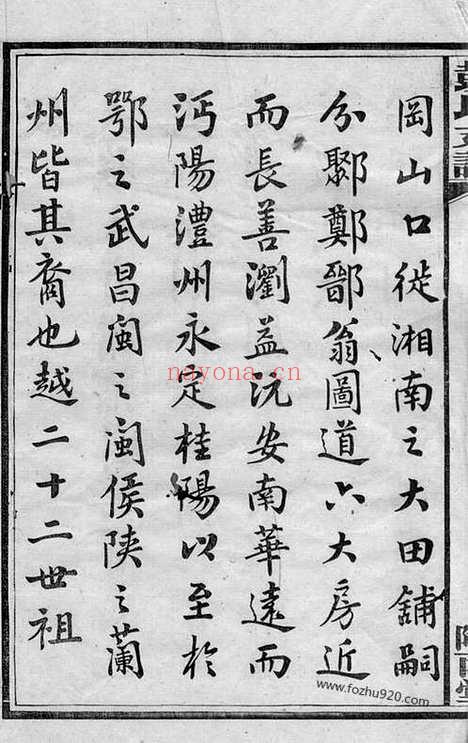 岡山口徙湘南之大田鋪嗣
分鄹鄭鄙翁圖道六大房近
而長善瀏益沅安南華遠而
沔陽澧州永定桂陽以至於
鄂之武昌閩之閩侯陝之蘭
州皆其裔也越二十二世祖
nayona.cn
www.fozhu920.com